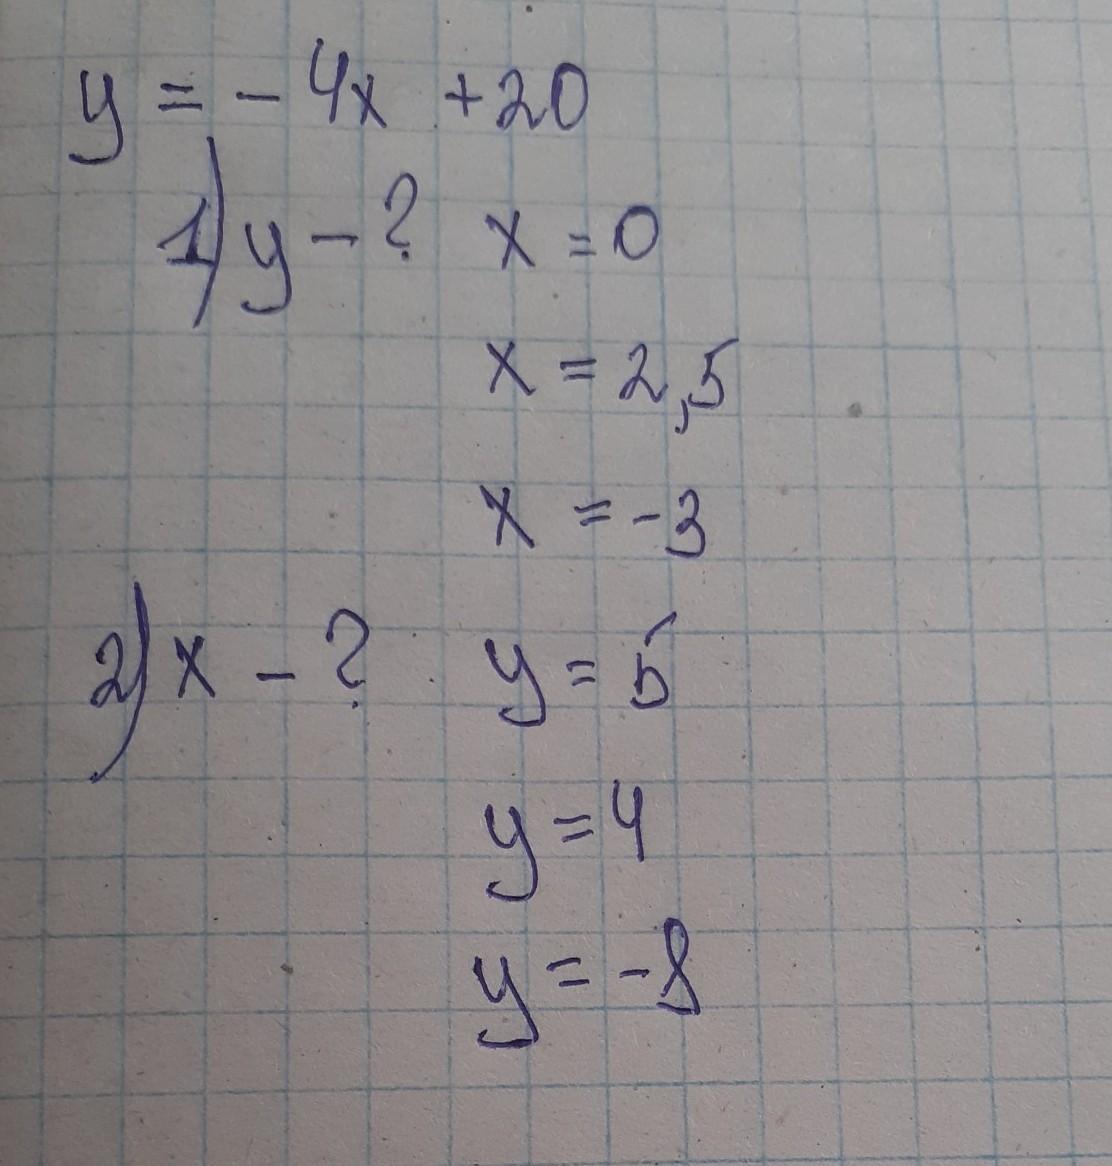 y = - 4x + 20
1) y - ? x = 0
x = 2,5
x = -3
2) x - ? y = 5
y = 4
y = -8